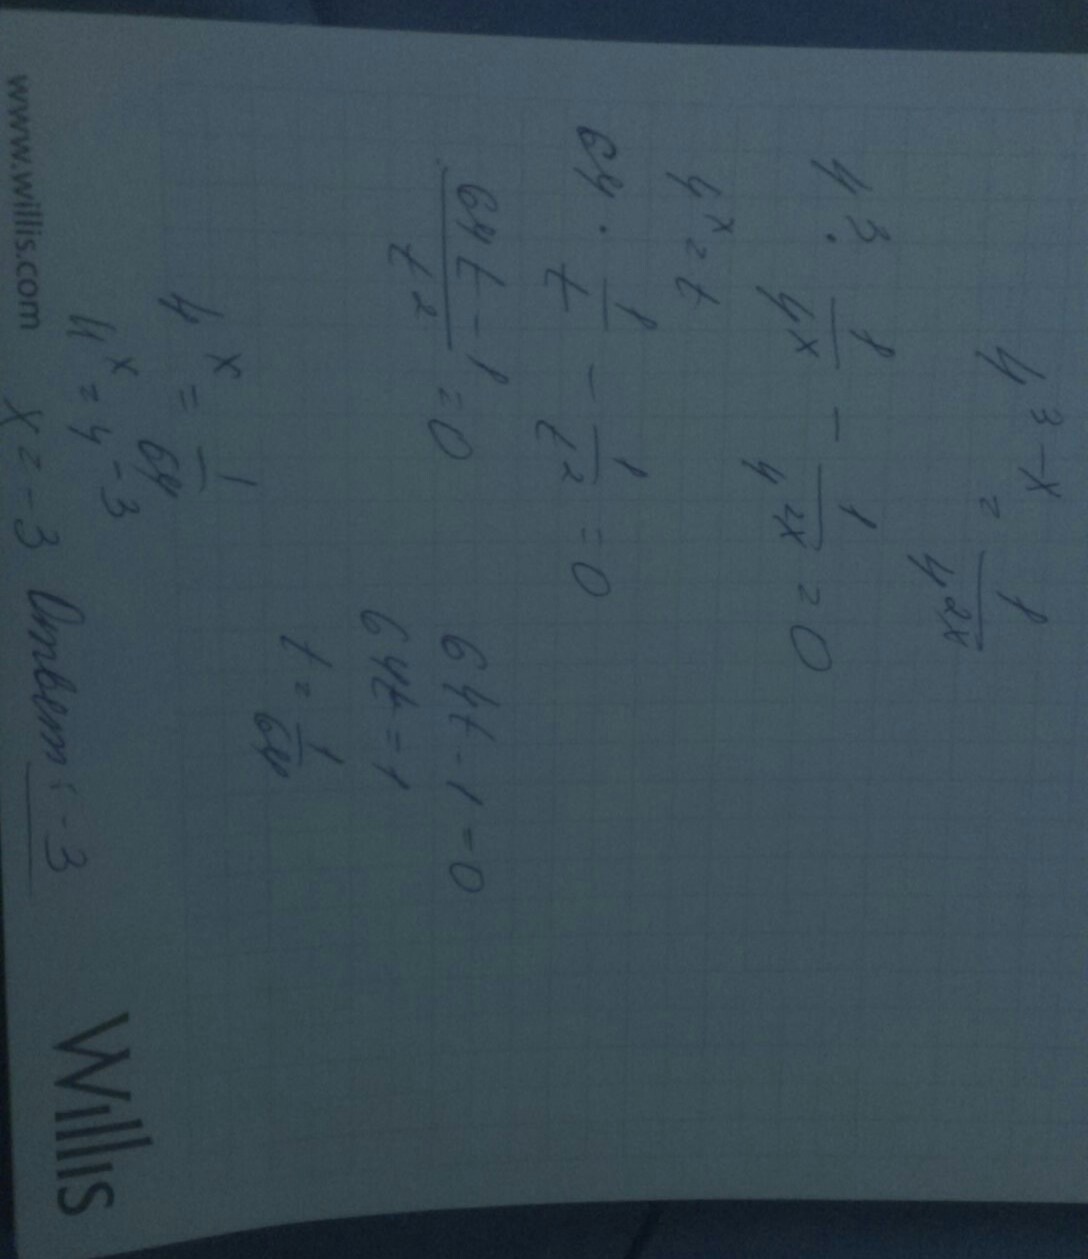 4^{3-x} = \frac{1}{4^{2x}}
4^3 \cdot \frac{1}{4^x} - \frac{1}{4^{2x}} = 0
4^x = t
64 \cdot \frac{1}{t} - \frac{1}{t^2} = 0
\frac{64t-1}{t^2} = 0
64t - 1 = 0
64t = 1
t = \frac{1}{64}
4^x = \frac{1}{64}
4^x = 4^{-3}
x = -3 Ответ: -3
www.willis.com
Willis